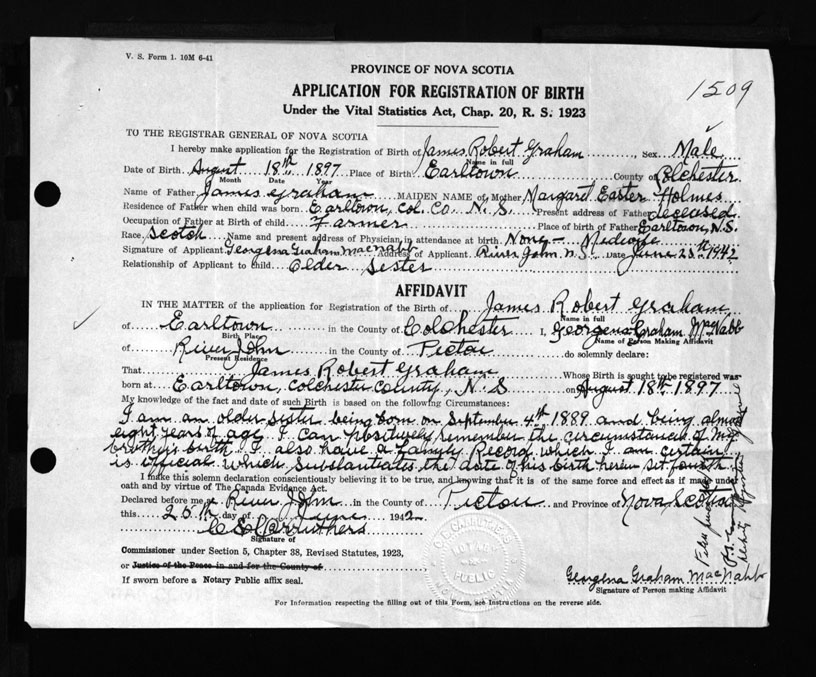 V. S. Form 1. 10M 6-41
PROVINCE OF NOVA SCOTIA
APPLICATION FOR REGISTRATION OF BIRTH
1509
Under the Vital Statistics Act, Chap. 20, R. S. 1923
TO THE REGISTRAR GENERAL OF NOVA SCOTIA
I hereby make application for the Registration of Birth of James Robert Graham, Sex Male
Name in full
Date of Birth August 18th 1897 Place of Birth Earltown County of Colchester
Month Date Year
Name of Father James Graham MAIDEN NAME of Mother Margaret Easter Holmes
Residence of Father when child was born Earltown, Col. Co. N. S. Present address of Father deceased
Occupation of Father at Birth of child Farmer Place of birth of Father Earltown, N.S.
Race Scotch Name and present address of Physician in attendance at birth None -
Signature of Applicant Georgena Graham MacNabb Address of Applicant River John N.S. Date June 25th 1942
Relationship of Applicant to child Older Sister
AFFIDAVIT
IN THE MATTER of the application for Registration of the Birth of James Robert Graham
Name in full
of Earltown in the County of Colchester I, Georgena Graham McNabb
Birth Place Name of Person Making Affidavit
of River John in the County of Pictou do solemnly declare:
Present Residence
That James Robert Graham Whose Birth is sought to be registered was
born at Earltown, Colchester County, N. S on August 18th 1897
My knowledge of the fact and date of such Birth is based on the following Circumstances:
I am an older sister being born on September 4th 1889 and being almost
eight years of age I can positively remember the circumstances of my
brother's birth. I also have a Family Record which I am certain
is official which substantiates the date of his birth herein set fourth.
I make this solemn declaration conscientiously believing it to be true, and knowing that it is of the same force and effect as if made under
oath and by virtue of The Canada Evidence Act.
Declared before me at River John in the County of Pictou and Province of Nova Scotia
this 25th day of June 1942
C E Carruthers
Signature of
Commissioner under Section 5, Chapter 38, Revised Statutes, 1923,
or Justice of the Peace in and for the County of
If sworn before a Notary Public affix seal.
C. E. CARRUTHERS
NOTARY
PUBLIC
NOVA SCOTIA
Georgena Graham MacNabb
Signature of Person making Affidavit
For Information respecting the filling out of this Form, see Instructions on the reverse side.